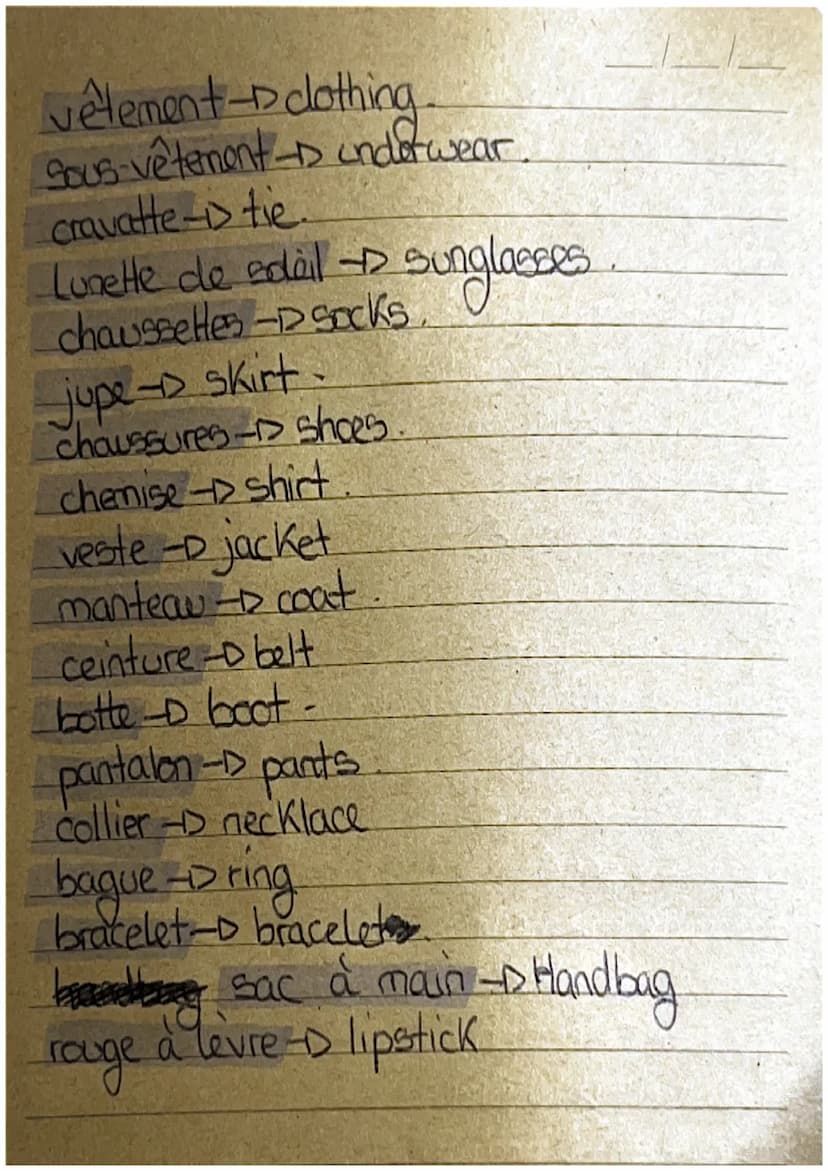 vêtement → clothing.
sous-vêtement → underwear.
cravatte → tie.
lunette de soleil → sunglasses.
chaussettes → socks.
jupe → skirt.
chaussures → shoes.
chemise → shirt.
veste → jacket
manteau → coat.
ceinture → belt
botte → boot.
pantalon → pants.
collier → necklace
bague → ring
bracelet → bracelet.
sac à main → Handbag
rouge à lèvre → lipstick